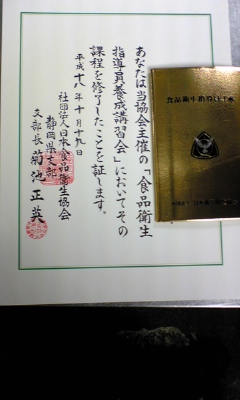 あなたは当協会主催の「食品衛生
指導員養成講習会」においてその
課程を修了したことを証します。
平成十八年十月十九日
社団法人日本食品衛生協会
静岡県支部
支部長 菊池正英
食品衛生指導員手帳